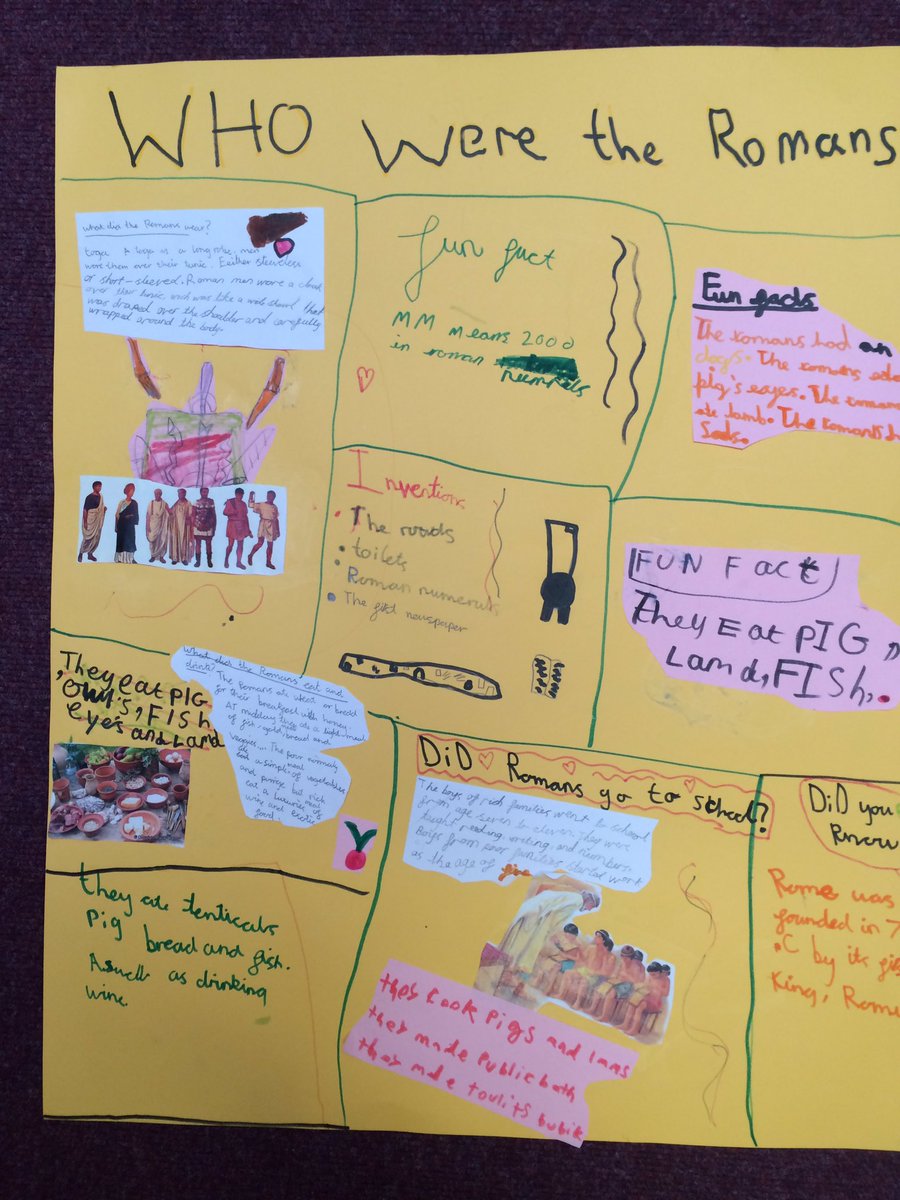 WHO Were the Romans
What did the Romans wear?
toga A toga is a long robe, men
wore them over their tunic. Eeither sleeveless
or short-sleeved. Roman men wore a cloak
over their tunic, wich was like a wide shawl that
was draped over the shoulder and carefully
wrapped around the body.
fun fact
MM means 2000
in roman
numrals
Fun facts
The romans had an
dogs. The romans
pig's eayes. The
ate lamb. The romans
Inventions
The roads
toilets
Roman numeruls
The fist newspaper
FUN Fact
They Eat PIG,
Land, FISh,
They eat PIG
owl's, FISh
eye's and Land
What did the Romans eat and
drink?
The Romans ate wheat or bread
for their breakfast with honey
AT midday was a light meal
of fish, bread and
The poor
a simple of vegetables
and but rich
eat a luxuries of
wine and exotic
food
they ate tenticals
Pig bread and fish.
Aswell as drinking
wine
DiD Romans go to school?
The boys of rich families went to school
from age seven to eleven. They were
taught reading, writing, and numbers.
Boys from poor families started work
as the age of five
they cook pigs and lams
they made Public bath
they made toulits bubik
DiD you
Know
Rome was
founded in 7
.C by its fis
King, Rom